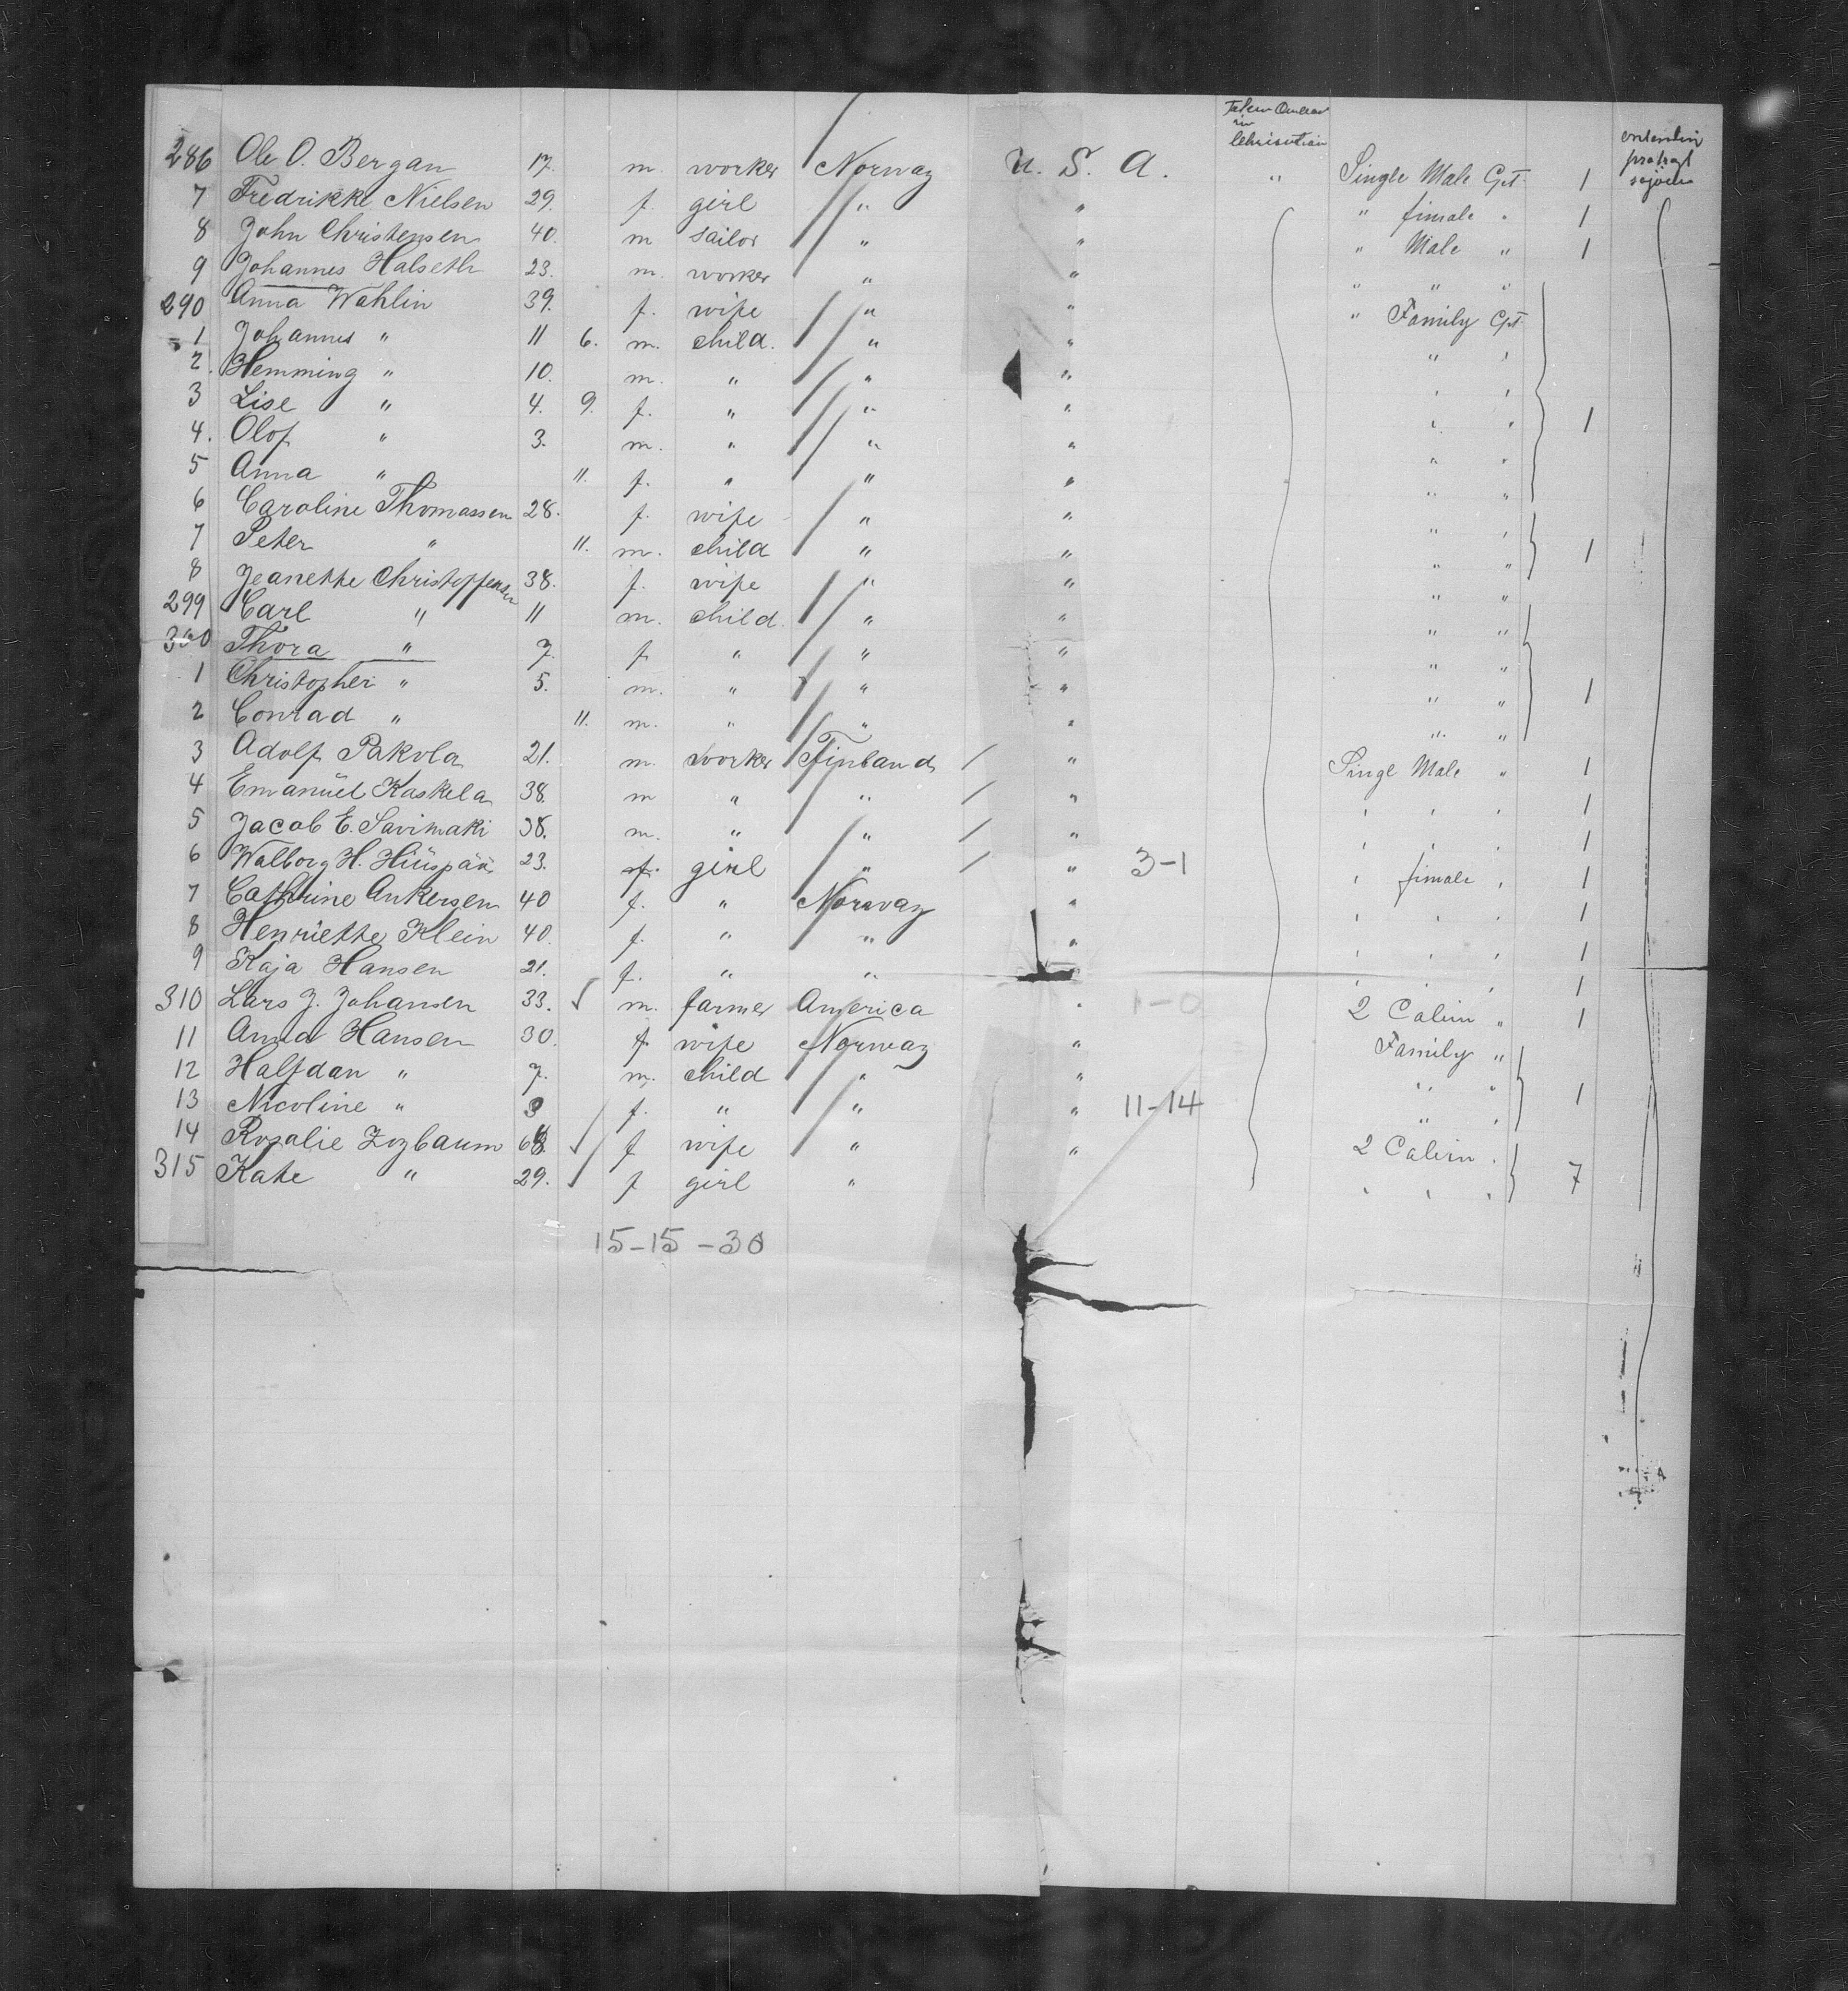 Taken Onboar
in
Christian
286 Ole O. Bergan 17. m. worker Norway U. S. A. " Single Male Cpt 1
7 Fredrikke Nielsen 29. f. girl " " " fimale " 1
8 John Christensen 40. m sailor " " " Male " 1
9 Johannes Halseth 23. m. worker " " " " "
290 Anna Wahlin 39. f. wife " " " Family Cpt
1 Johannes " 11 6. m. child. " " " "
2. Hemming " 10. m. " " " " "
3 Lise " 4. 9. f. " " " " " 1
4. Olof " 3. m. " " " " "
5 Anna " 11. f. " " " " "
6 Caroline Thomassen 28. f. wife " " " "
7 Peter " 11. m. child " " " " 1
8 Jeanette Christoffensen 38. f. wife " " " "
299 Carl " 11 m. child. " " " "
300 Thora " 7. f. " " " " "
1 Christopher " 5. m. " " " " " 1
2 Conrad " 11. m. " " " " "
3 Adolf Pakola 21. m. worker Finland / " Singl Male " 1
4 Emanuel Kaskela 38. m " " / " " " " 1
5 Jacob E. Savimaki 38. m. " " / " " " " 1
6 Walborg H. 23. f. girl " / " 3-1 " fimale " 1
7 Cathrine Ankersen 40 f. " Norway " " " " 1
8 Henriette Klein 40. f. " " " " " " 1
9 Kaja Hansen 21. f. " " " " " " 1
310 Lars J. Johansen 33. ✓ m. farmer America " 1-0 2 Cabin " 1
11 Anna Hansen 30. f. wife Norway " Family "
12 Halfdan " 7. m. child " " " " 1
13 Nicoline " 3 f. " " " 11-14 " "
14 Rosalie Zozbaum 68. ✓ f wife " " 2 Cabin "
315 Kate " 29. ✓ f girl " " " " 7
15-15-30